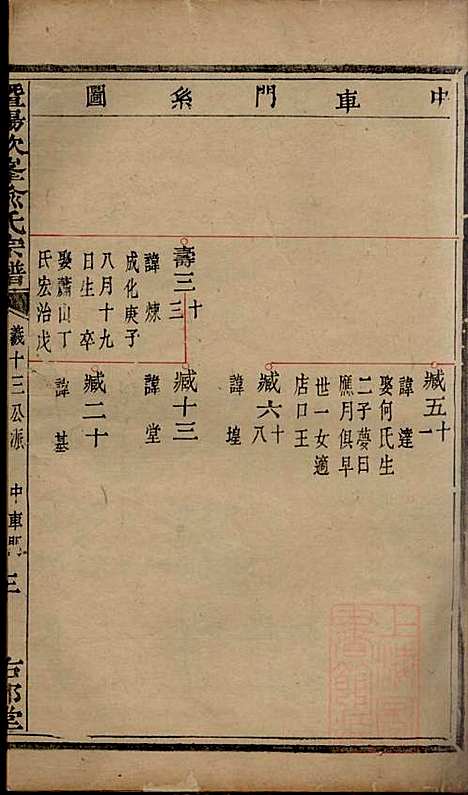 中車門系圖
臧五十一
諱達
娶何氏生
二子夢日
應月俱早
世一女適
店口王
臧六十八
諱堭
壽三十三
諱煉
成化庚子
八月十九
日生卒
娶蕭山丁
氏宏治戊
臧十三
諱堂
臧二十
諱基
暨陽次峯俞氏宗譜
義十三公派
中車門
三